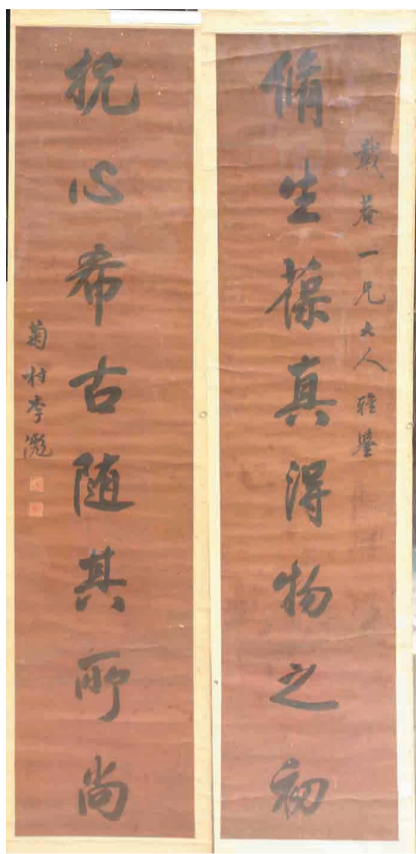 戴菴一兄大人雅鑒
脩生葆真得物之初
抗心希古隨其所尚
菊村李滮